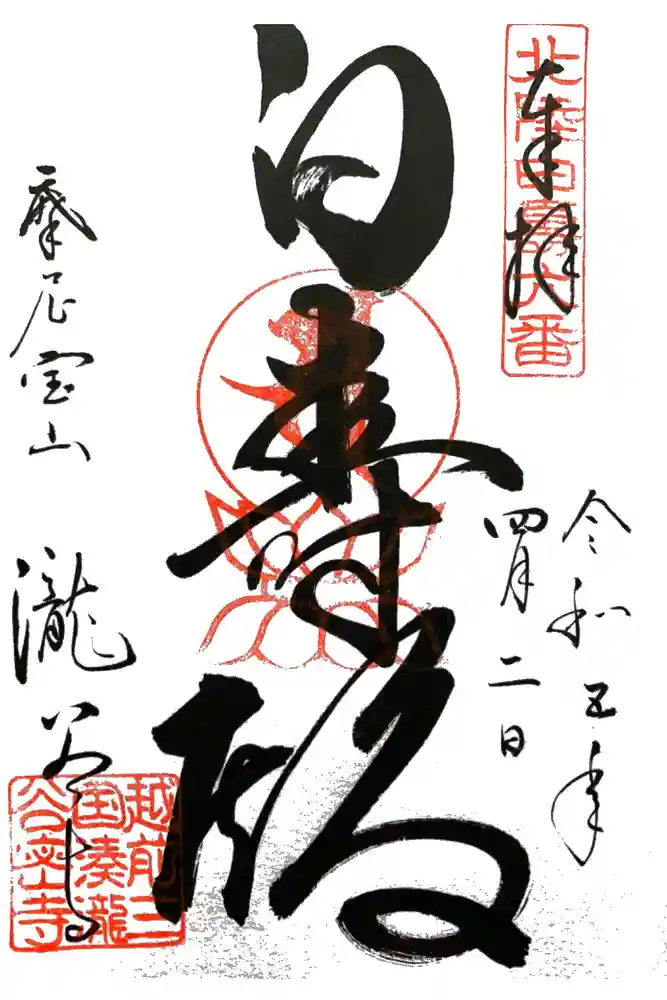 奉拝
北陸白寿六番
令和五年
四月二日
白寿殿
摩尼宝山
瀧谷寺
越前三
国湊瀧
谷寺